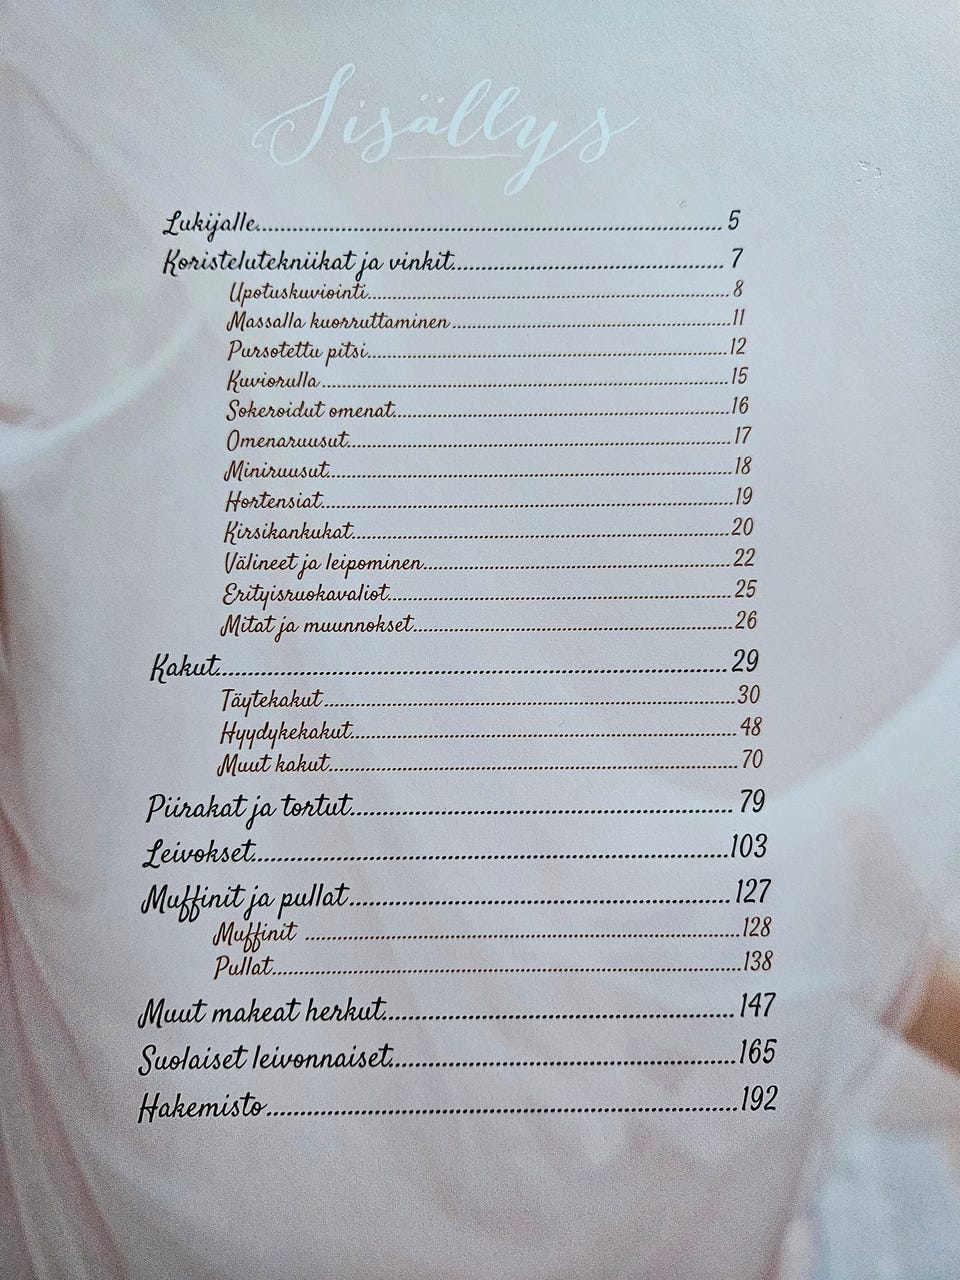 Sisällys
Lukijalle.......... 5
Koristelutekniikat ja vinkit.......... 7
Upotuskuviointi.......... 8
Massalla kuorruttaminen.......... 11
Pursotettu pitsi.......... 12
Kuviorulla.......... 15
Sokeroidut omenat.......... 16
Omenaruusut.......... 17
Miniruusut.......... 18
Hortensiat.......... 19
Kirsikankukat.......... 20
Välineet ja leipominen.......... 22
Erityisruokavaliot.......... 25
Mitat ja muunnokset.......... 26
Kakut.......... 29
Täytekakut.......... 30
Hyydykekakut.......... 48
Muut kakut.......... 70
Piirakat ja tortut.......... 79
Leivokset.......... 103
Muffinit ja pullat.......... 127
Muffinit .......... 128
Pullat.......... 138
Muut makeat herkut.......... 147
Suolaiset leivonnaiset.......... 165
Hakemisto.......... 192